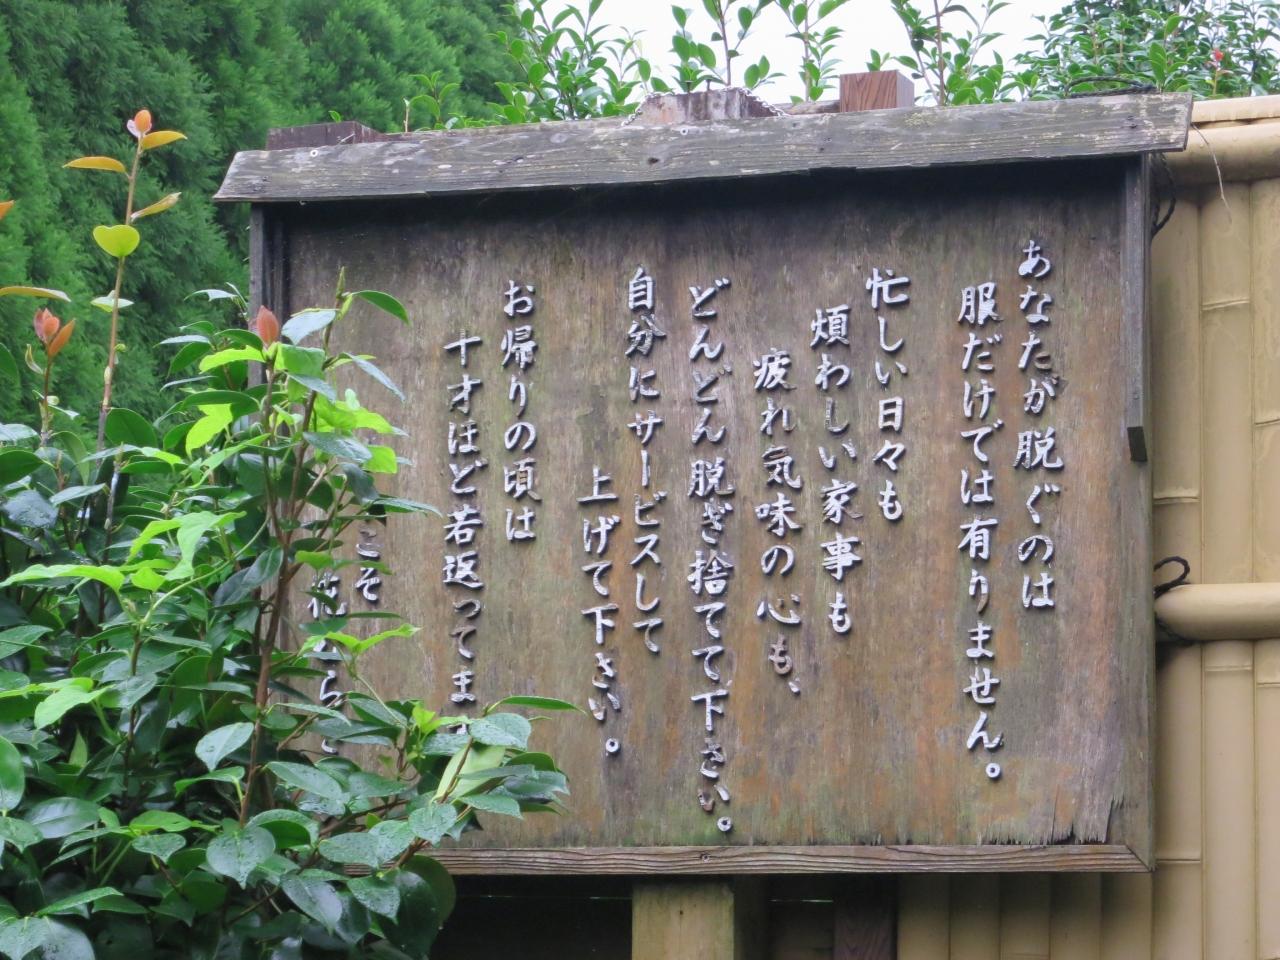 あなたが脱ぐのは
服だけでは有りません。
忙しい日々も
煩わしい家事も
疲れ気味の心も、
どんどん脱ぎ捨てて下さい。
自分にサービスして
上げて下さい。
お帰りの頃は
十才ほど若返ってま
こそ